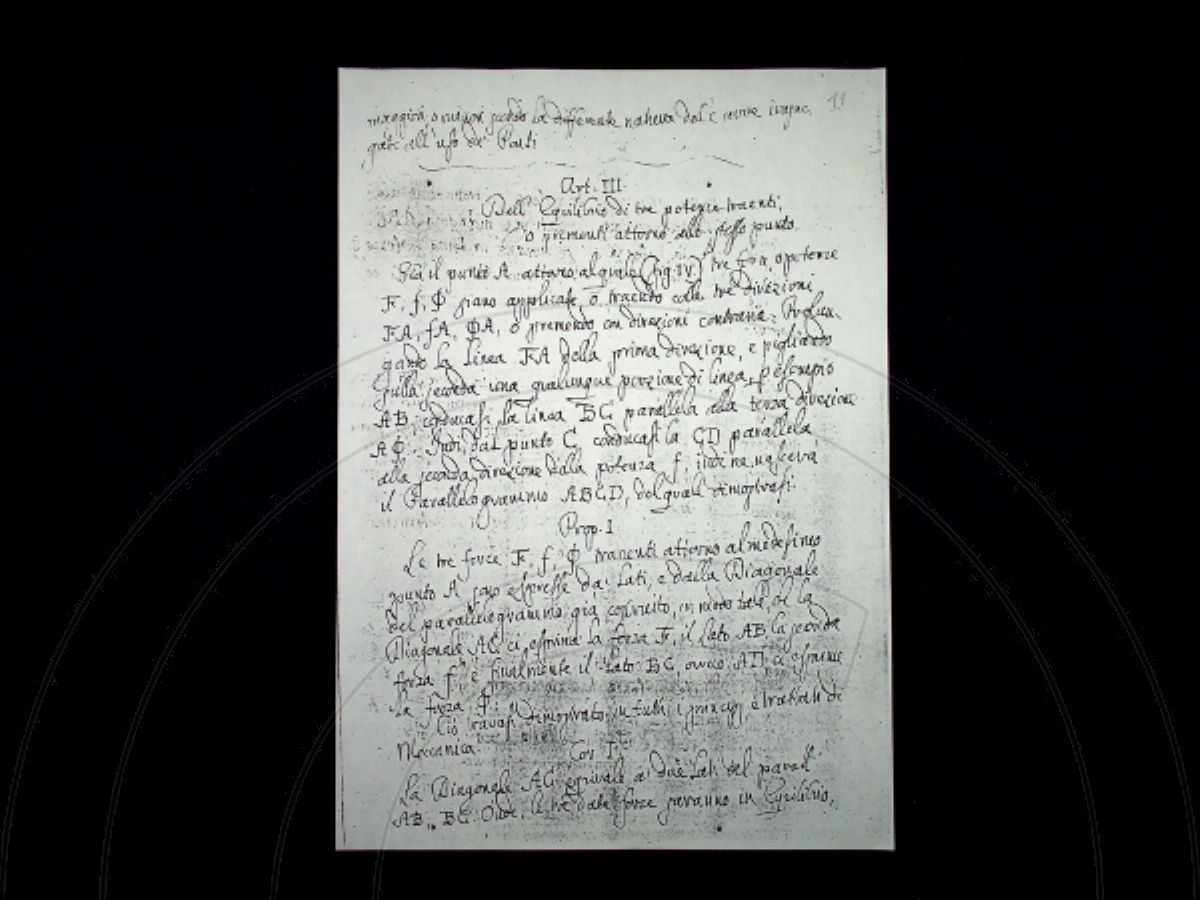 11
maggiori, o minori secondo la differente natura dal
gati all' uso de' Ponti
Art. III.
Dell' Equilibrio di tre potenze traenti,
o prementi attorno allo stesso punto.
Sia il punto A attorno al quale (fig. IV.) tre forze, o potenze
F, f, Φ siano applicate, o traendo colle tre direzioni
FA, fA, ΦA, o premendo con direzioni contrarie. Prolun-
gando la linea FA della prima direzione, e pigliando
sulla seconda una qualunque porzione di linea, p esempio
AB, conducasi la linea BC parallela alla terza direzione
AΦ. Indi dal punto C conducasi la CD parallela
alla seconda direzione dalla potenza f, indi ne nascerà
il Parallelogrammo ABCD, del quale dimostrasi.
Prop. I
Le tre forze F, f, Φ traenti attorno al medesimo
punto A sono espresse da' Lati, e dalla Diagonale
del parallelogrammo già costruito, in modo tale, che la
Diagonale AC ci esprima la forza F, il Lato AB la seconda
forza f, e finalmente il Lato BC, ovvero AD ci esprime
la forza Φ:
Ciò dimostrato in tutti i principj, e trattati di
Meccanica.
Cor. I.
La Diagonale AC equivale a' due Lati del parall.
AB, BC. Onde, le tre date forze saranno in Equilibrio,